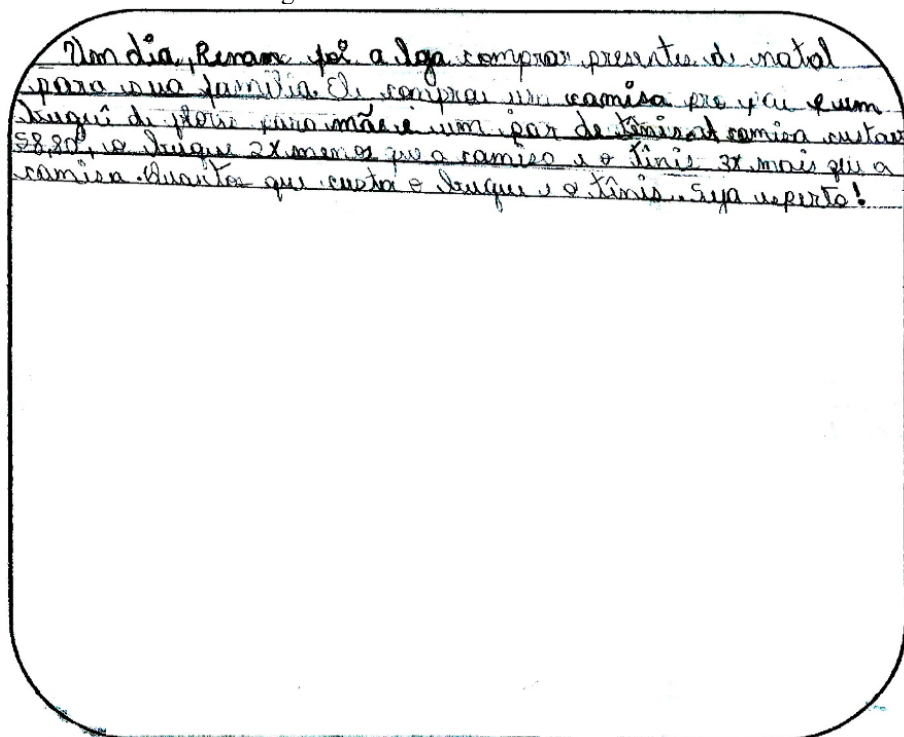 Um dia, Renan foi a loja comprar presentes de natal
para sua família. Ele comprou um camisa pro pai e um
buquê de flores para mãe e um par de tênis. A camisa custava
58,80, o buque 2x menos que a camisa e o tênis 3x mais que a
camisa. Quantos que custa o buque e o tênis. Seja esperto!